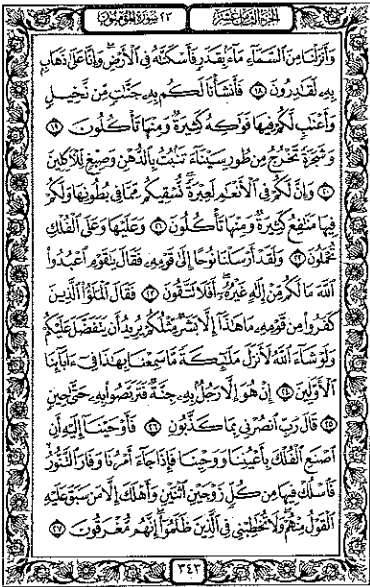 الجزء الثامن عشر ٢٣ سورة المؤمنون
وَأَنزَلْنَا مِنَ السَّمَآءِ مَآءً بِقَدَرٍ فَأَسْكَنَّٰهُ فِى الْأَرْضِ وَإِنَّا عَلَىٰ ذَهَابٍ
بِهِۦ لَقَٰدِرُونَ ١٨ فَأَنشَأْنَا لَكُم بِهِۦ جَنَّٰتٍ مِّن نَّخِيلٍ
وَأَعْنَٰبٍ لَّكُمْ فِيهَا فَوَٰكِهُ كَثِيرَةٌ وَمِنْهَا تَأْكُلُونَ ١٩
وَشَجَرَةً تَخْرُجُ مِن طُورِ سَيْنَآءَ تَنۢبُتُ بِالدُّهْنِ وَصِبْغٍ لِّلْءَاكِلِينَ
٢٠ وَإِنَّ لَكُمْ فِى الْأَنْعَٰمِ لَعِبْرَةً نُّسْقِيكُم مِّمَّا فِى بُطُونِهَا وَلَكُمْ
فِيهَا مَنَٰفِعُ كَثِيرَةٌ وَمِنْهَا تَأْكُلُونَ ٢١ وَعَلَيْهَا وَعَلَى الْفُلْكِ
تُحْمَلُونَ ٢٢ وَلَقَدْ أَرْسَلْنَا نُوحًا إِلَىٰ قَوْمِهِۦ فَقَالَ يَٰقَوْمِ اعْبُدُوا۟
اللَّهَ مَا لَكُم مِّنْ إِلَٰهٍ غَيْرُهُۥٓ أَفَلَا تَتَّقُونَ ٢٣ فَقَالَ الْمَلَؤُا۟ الَّذِينَ
كَفَرُوا۟ مِن قَوْمِهِۦ مَا هَٰذَآ إِلَّا بَشَرٌ مِّثْلُكُمْ يُرِيدُ أَن يَتَفَضَّلَ عَلَيْكُمْ
وَلَوْ شَآءَ اللَّهُ لَأَنزَلَ مَلَٰٓئِكَةً مَّا سَمِعْنَا بِهَٰذَا فِىٓ ءَابَآئِنَا
الْأَوَّلِينَ ٢٤ إِنْ هُوَ إِلَّا رَجُلٌۢ بِهِۦ جِنَّةٌ فَتَرَبَّصُوا۟ بِهِۦ حَتَّىٰ حِينٍ
٢٥ قَالَ رَبِّ انصُرْنِى بِمَا كَذَّبُونِ ٢٦ فَأَوْحَيْنَآ إِلَيْهِ أَنِ
اصْنَعِ الْفُلْكَ بِأَعْيُنِنَا وَوَحْيِنَا فَإِذَا جَآءَ أَمْرُنَا وَفَارَ التَّنُّورُ
فَاسْلُكْ فِيهَا مِن كُلٍّ زَوْجَيْنِ اثْنَيْنِ وَأَهْلَكَ إِلَّا مَن سَبَقَ عَلَيْهِ
الْقَوْلُ مِنْهُمْ وَلَا تُخَٰطِبْنِى فِى الَّذِينَ ظَلَمُوٓا۟ إِنَّهُم مُّغْرَقُونَ ٢٧
٣٤٣